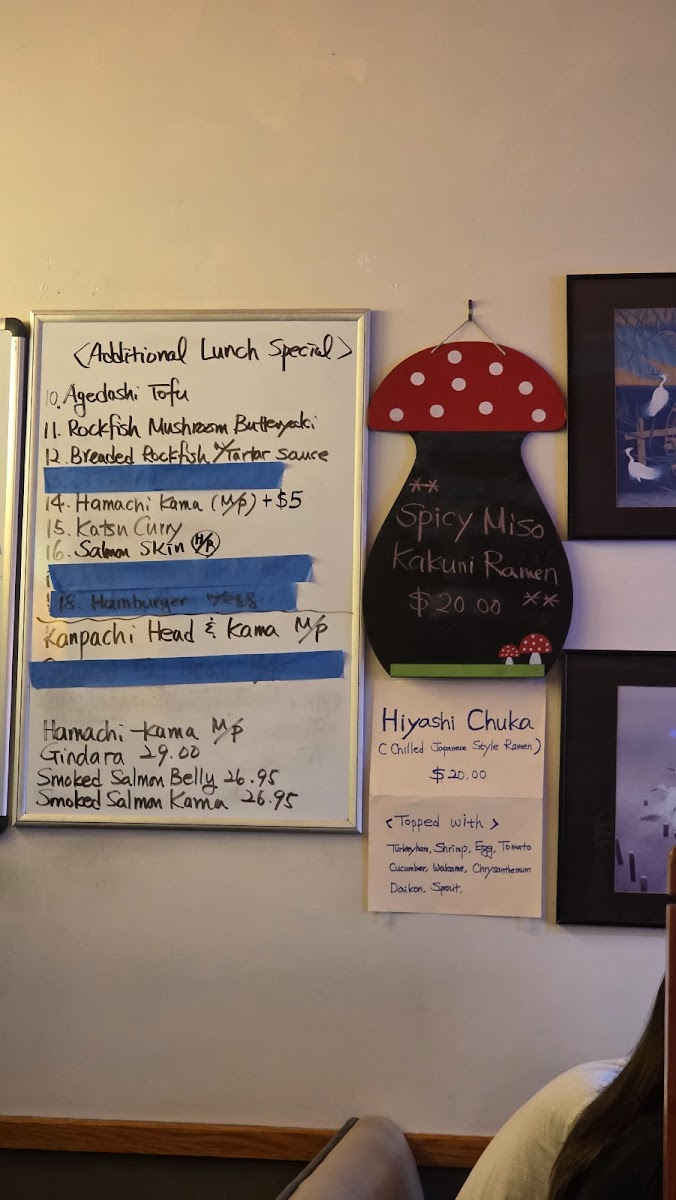 <Additional Lunch Special>
10. Agedashi Tofu
11. Rockfish Mushroom Butteryaki
12. Breaded Rockfish w/Tartar Sauce
14. Hamachi Kama (M/p) + $5
15. Katsu Curry
16. Salmon Skin H/R
18. Hamburger w/egg
Kanpachi Head & Kama M/p
Hamachi-Kama M/p
Gindara 29.00
Smoked Salmon Belly 26.95
Smoked Salmon Kama 26.95
** Spicy Miso
Kakuni Ramen
$20.00 **
Hiyashi Chuka
(Chilled Japanese Style Ramen)
$20.00
<Topped with>
Turkeyham, Shrimp, Egg, Tomato
Cucumber, Wakame, Chrysanthemum
Daikon, Sprout.